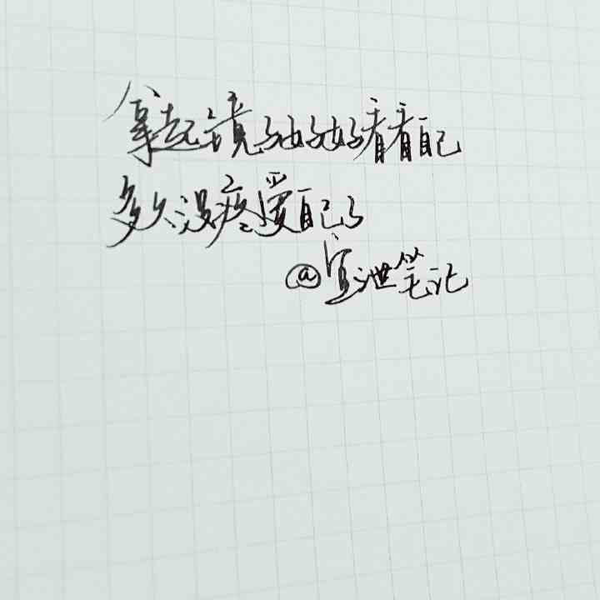 拿起镜子好好看看自己
多久没疼爱自己了
@宣泄笔记